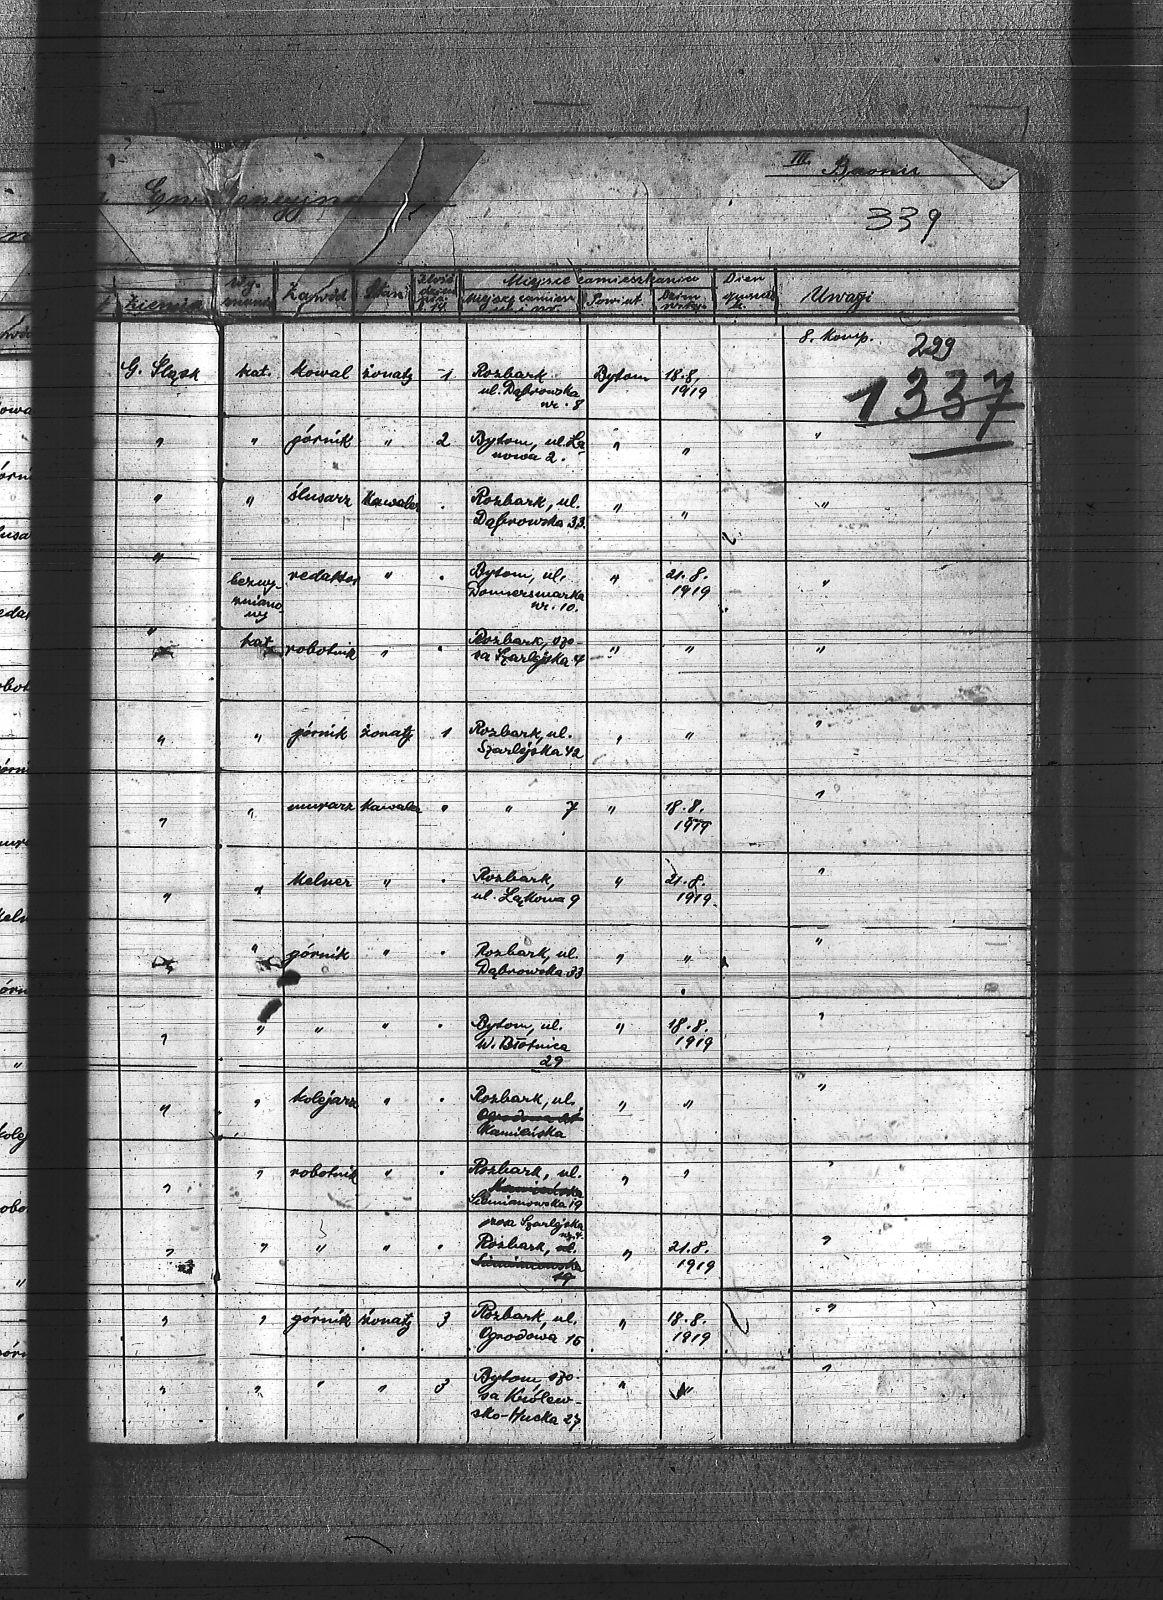 III. Baonu
Ewidencyjna
339
Ziemia
Wyznanie
Zawód
Stan
Miejsce zamieszkania
Powiat
Uwagi
8. Komp.
299
1337
G. Śląsk kat. kowal żonaty 1 Rozbark Bytom 18.8.
ul. Dąbrowska 1919
nr. 8
" " górnik " 2 Bytom, ul. Łą- " " "
nowa 2.
" " ślusarz kawaler . Rozbark, ul. " " "
Dąbrowska 33.
" bezwy- redaktor " . Bytom, ul. " 21.8. "
znanio- Donnersmarka 1919
wy nr. 10.
" kat. robotnik " . Rozbark, szo- " " "
sa Szarlejska 4
" " górnik żonaty 1 Rozbark, ul. " " "
Szarlejska 42
" " murarz kawaler " " 7 " 18.8. "
1919
" " kelner " . Rozbark, " 21.8. "
ul. Łąkowa 9 1919
" " górnik " . Rozbark, ul. " " "
Dąbrowska 33
" " " " . Bytom, ul. " 18.8. "
W. Błotnica 1919
29
" " kolejarz " . Rozbark, ul. " " "
Kamieńska
" " robotnik " . Rozbark, ul. " " "
Siemianowska 19
szosa Szarlejska
nr. 4.
" " " " . Rozbark, ul. " 21.8. "
Siemianowska 1919
19
" " górnik żonaty 3 Rozbark, ul. " 18.8. "
Ogrodowa 16 1919
" " " " 3 Bytom, szo- " " "
sa Królew-
sko-Hucka 27